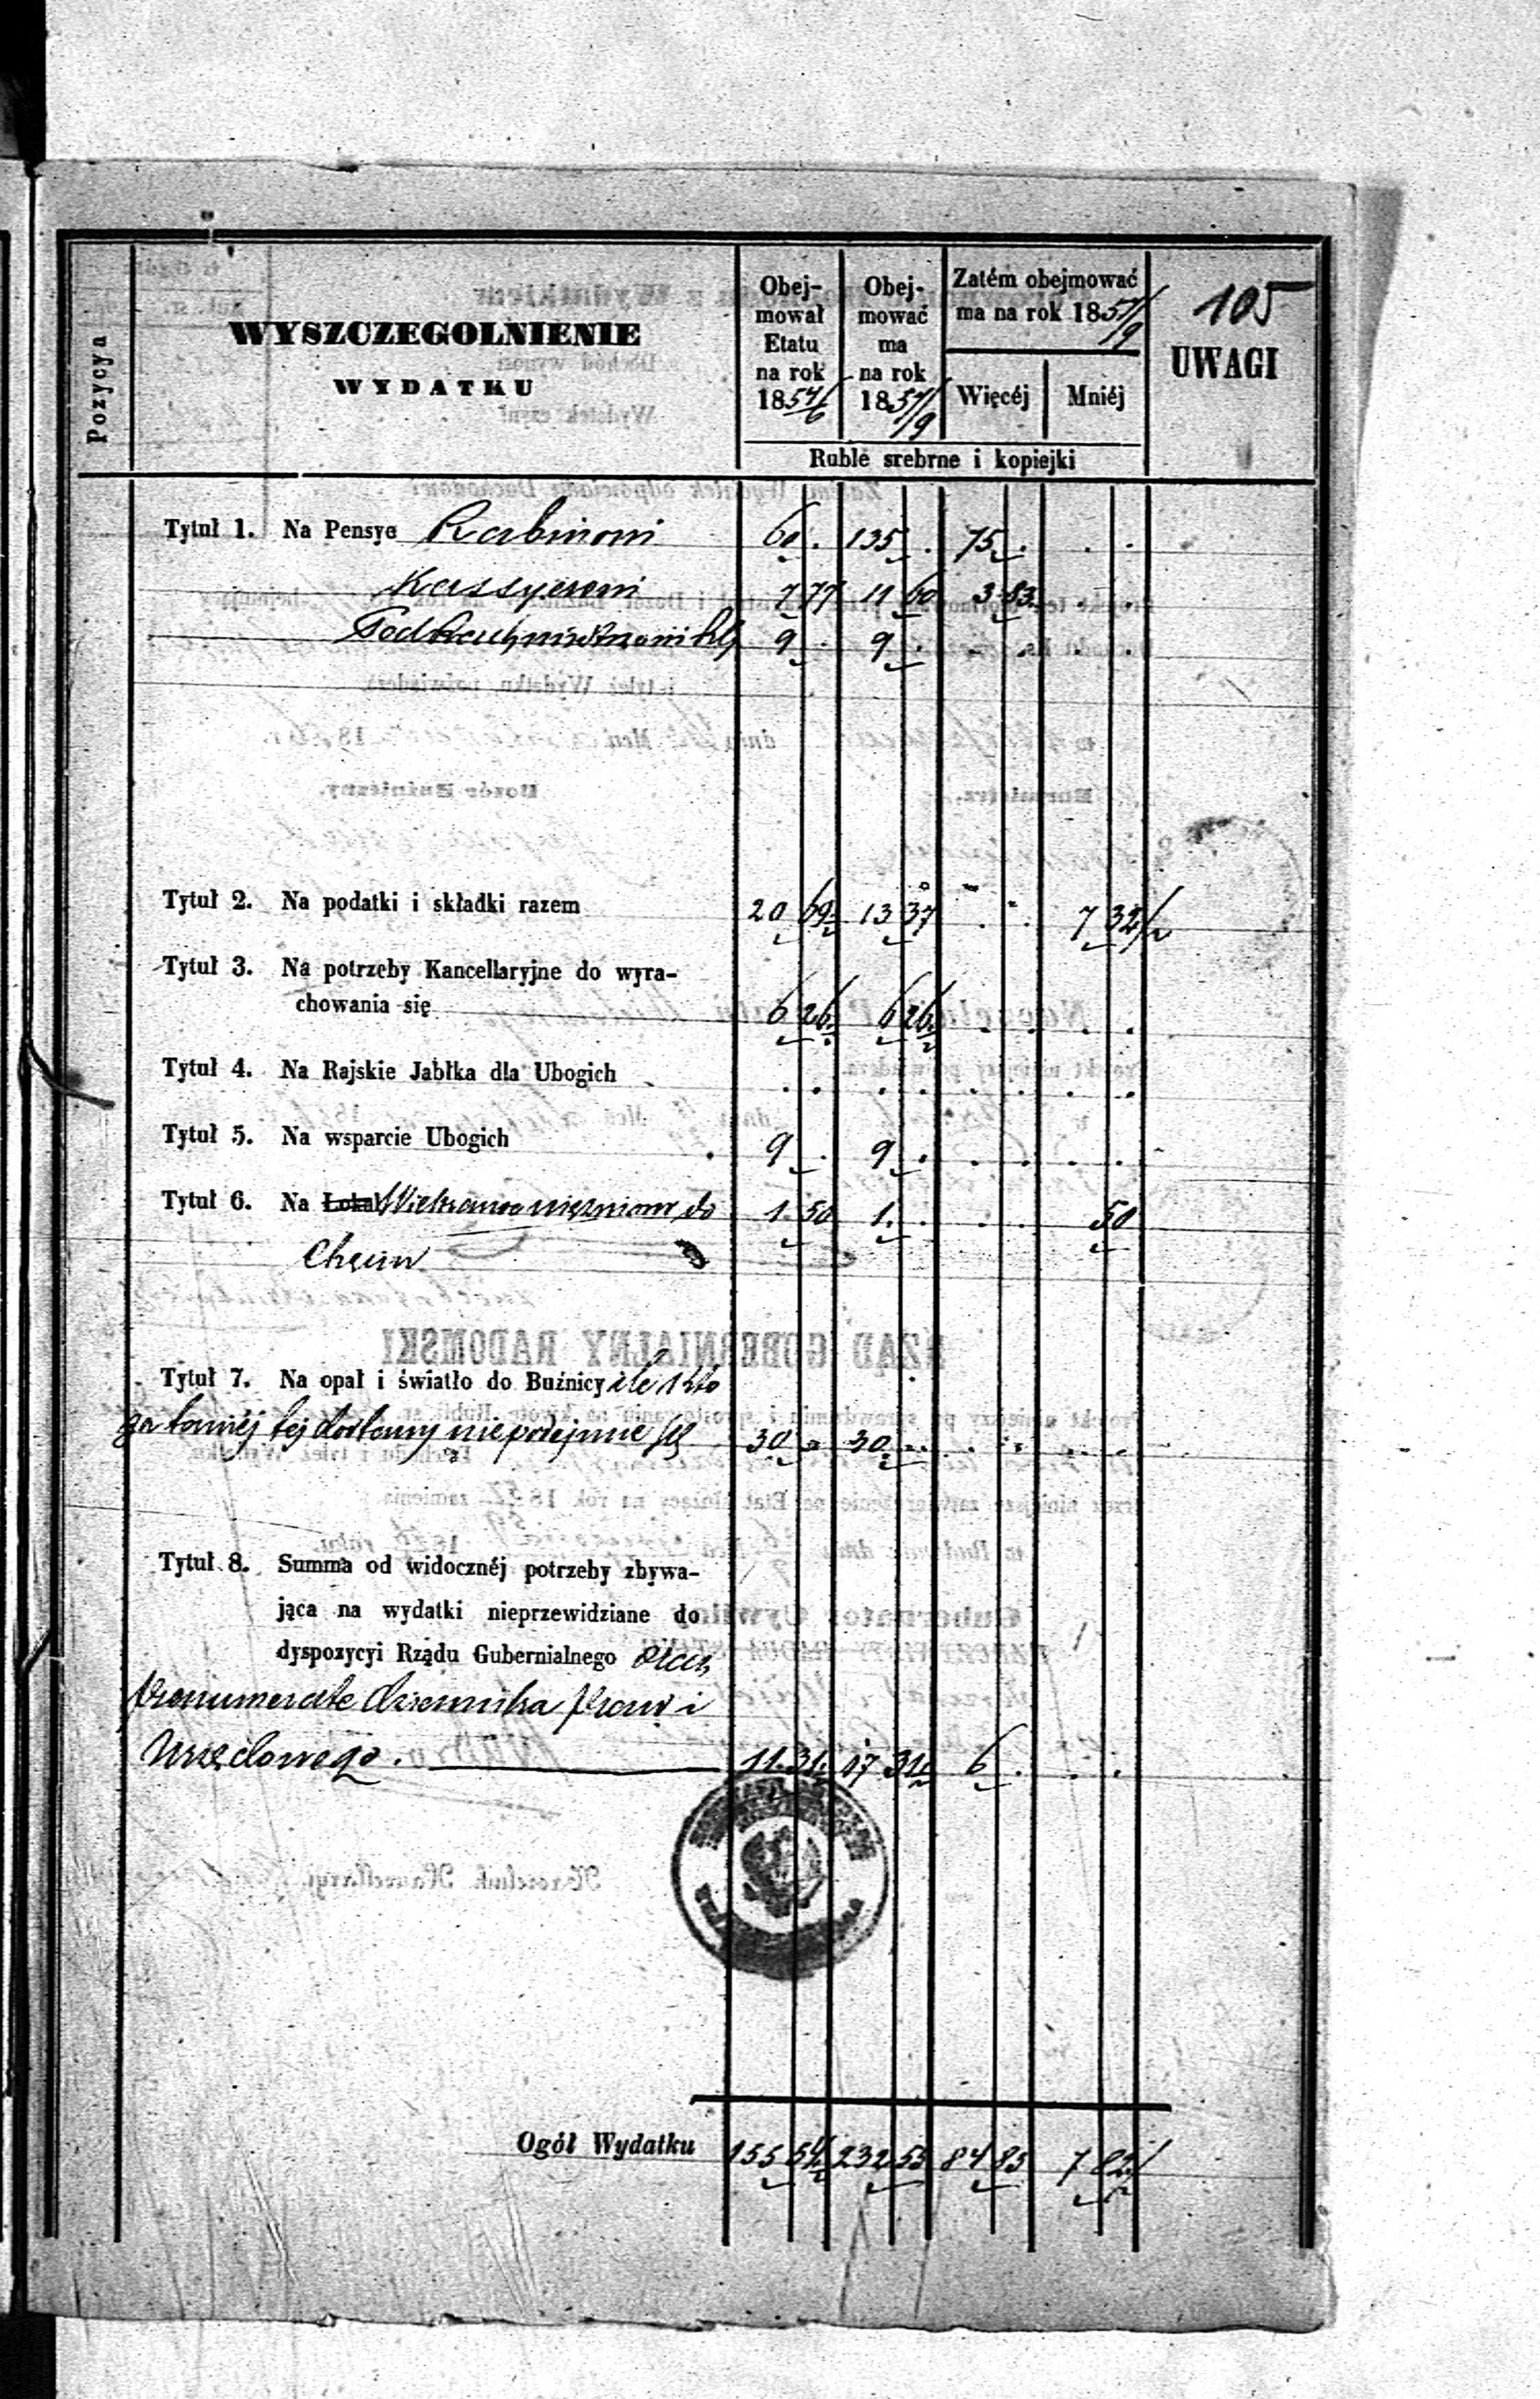 105
Pozycya
WYSZCZEGOLNIENIE
WYDATKU
Obej-
mował
Etatu
na rok
1854/6
Obej-
mować
ma
na rok
1857/9
Zatém obejmować
ma na rok 1857/9
Więcéj
Mniéj
UWAGI
Ruble srebrne i kopiejki
Tytuł 1. Na Pensye Rabinowi 60 . 135 . 75 . . .
Kassyerowi 7 77 11 60 3 83
9 . 9 . . . . .
Tytuł 2. Na podatki i składki razem 20 69½ 13 37 . . 7 32½
Tytuł 3. Na potrzeby Kancellaryjne do wyra-
chowania się 6 26½ 6 26½ . . . .
Tytuł 4. Na Rajskie Jabłka dla Ubogich . . . . . . . .
Tytuł 5. Na wsparcie Ubogich 9 . 9 . . . . .
Tytuł 6. Na Lokal więzniow do 1 50 1 . . . 50
Chęcin
Tytuł 7. Na opał i światło do Buźnicy ile kto
za taniéj tej dostawy nie podejmie się 30 . 30 . . . . .
Tytuł 8. Summa od widocznéj potrzeby zbywa-
jąca na wydatki nieprzewidziane do
dyspozycyi Rządu Gubernialnego oraz
prenumerate dziennika praw i
Urzędowego. 11 31½ 17 31½ 6 . . .
Ogół Wydatku 155 54½ 232 55 84 83 7 82½